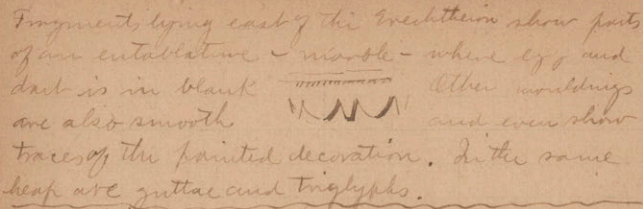 Fragments lying east of the Erechtheion show parts
of an entablature - marble - where egg and
dart is in blank Other mouldings
are also smooth and even show
traces of the painted decoration. In the same
heap are guttae and triglyphs.